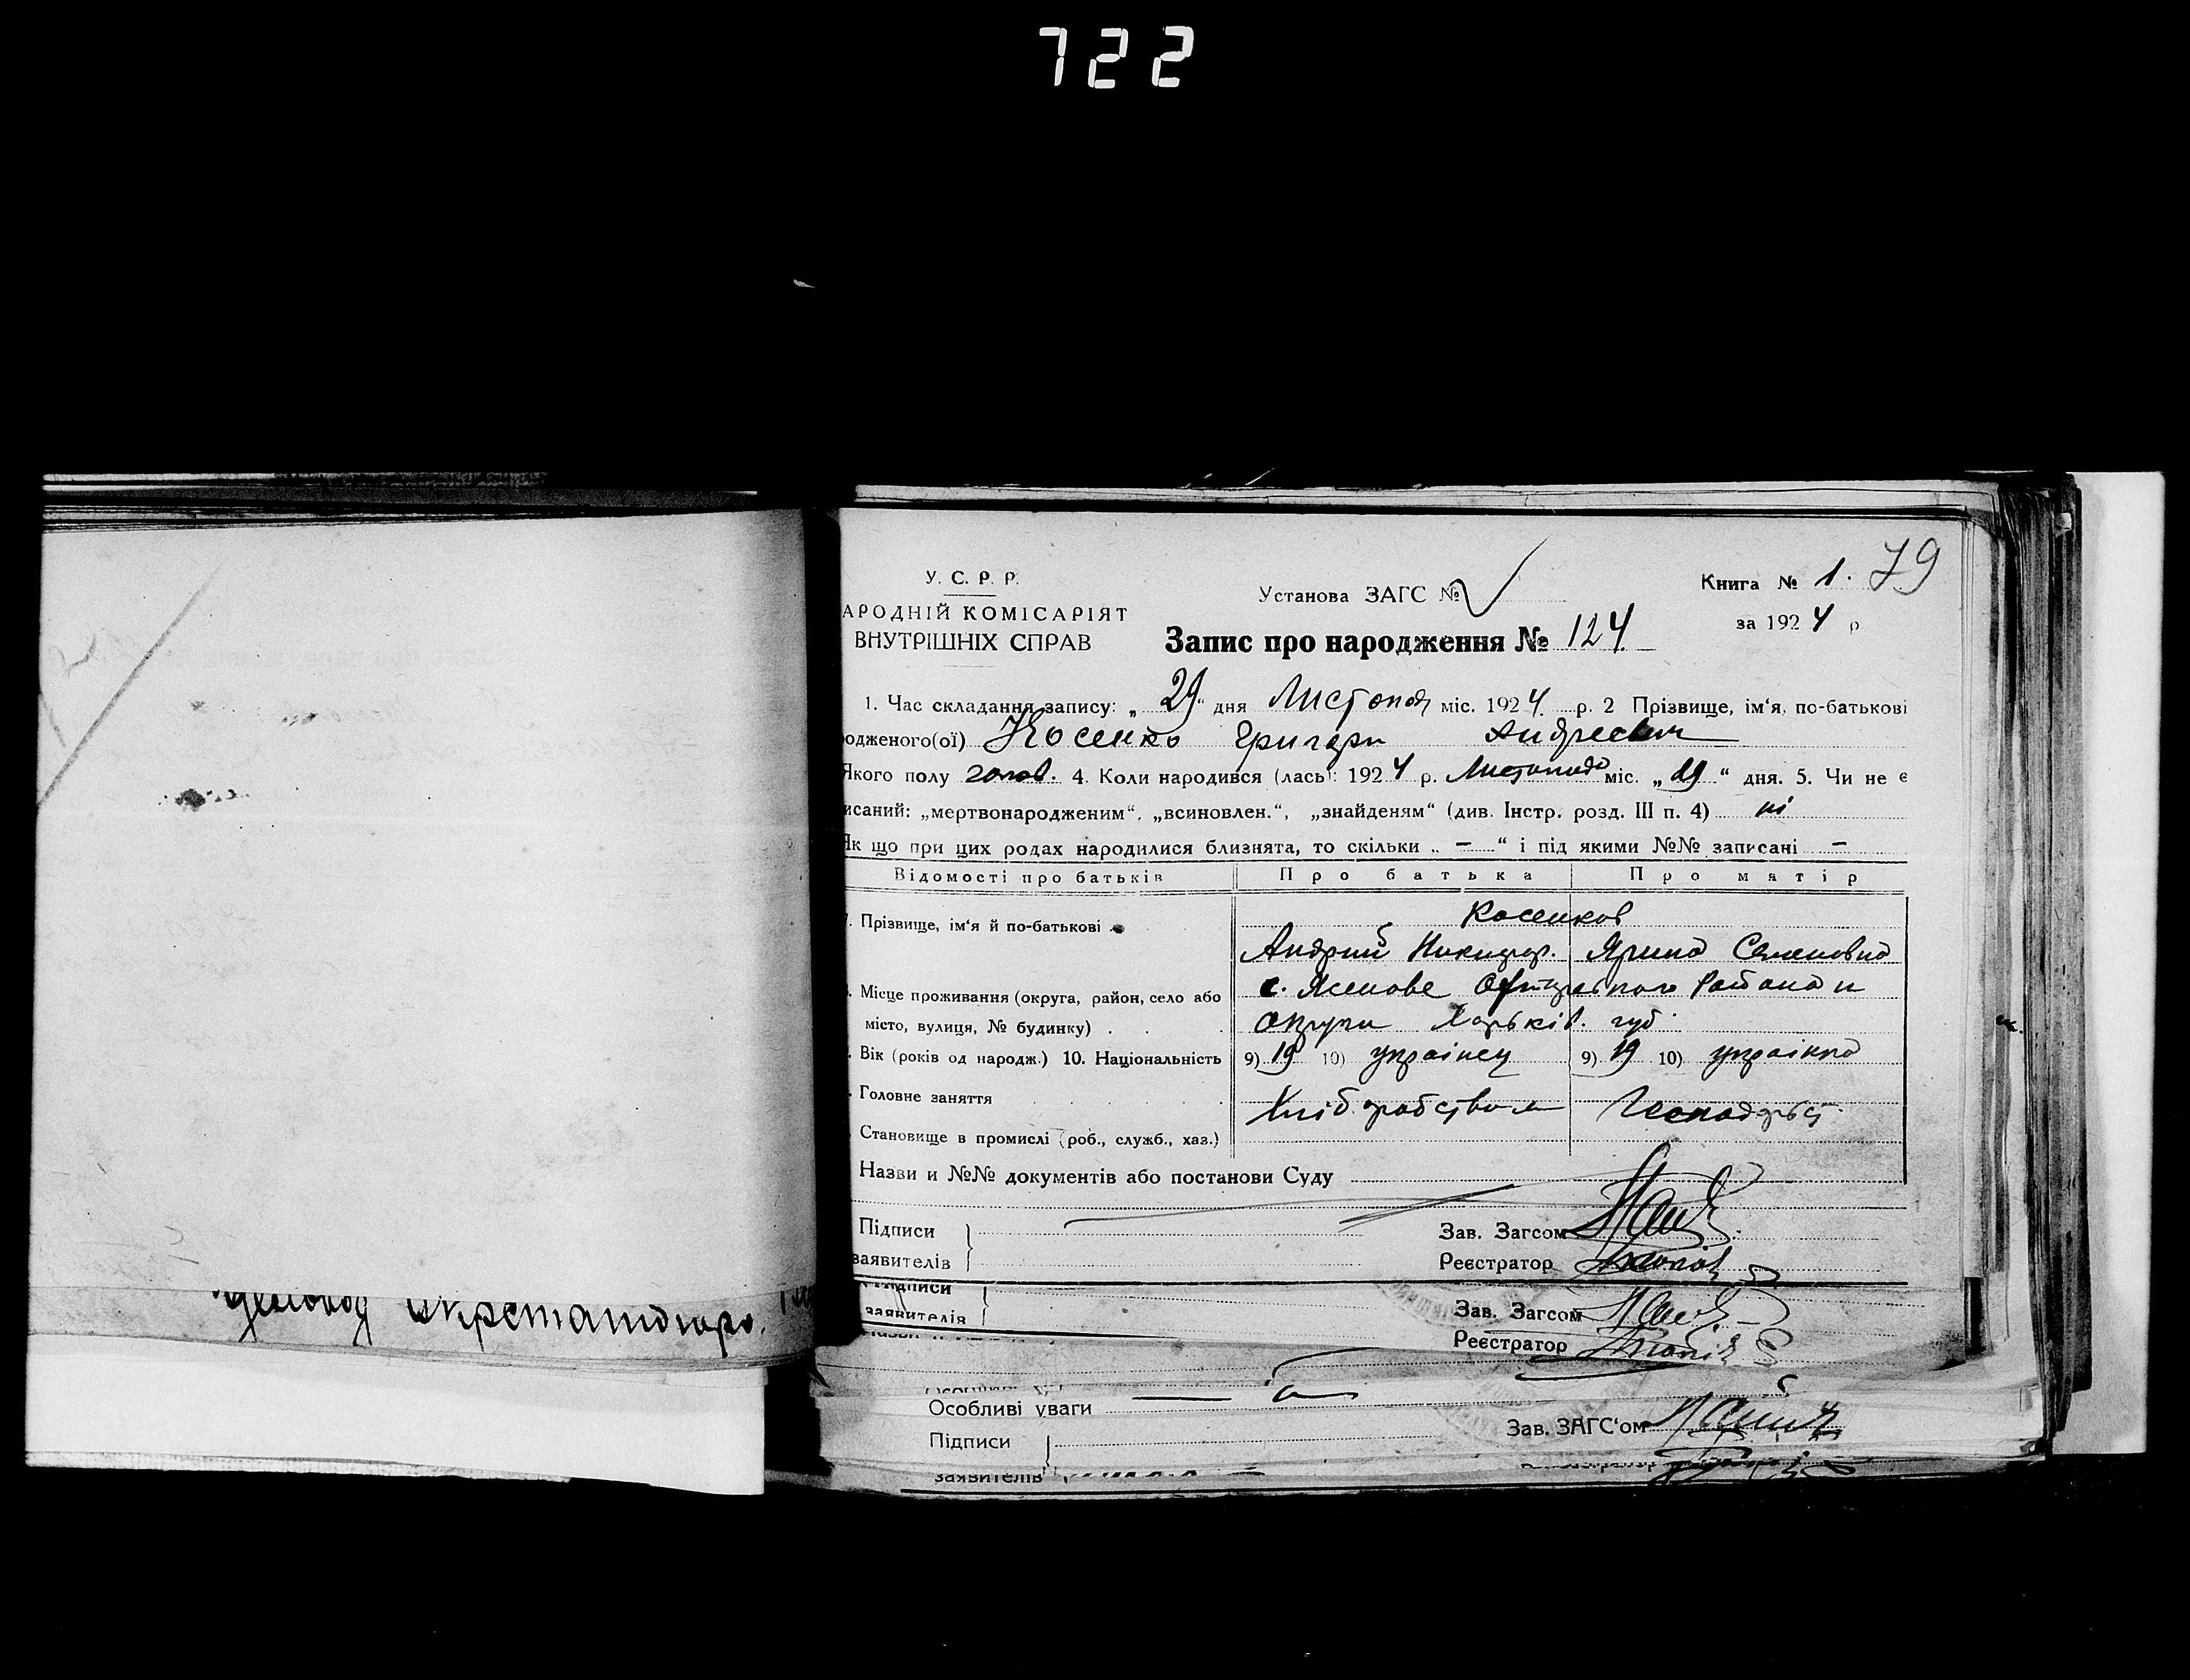 722
У. С. Р. Р.
АРОДНІЙ КОМІСАРІЯТ
ВНУТРІШНІХ СПРАВ
Установа ЗАГС №
Книга № 1. 79
за 1924 р
Запис про народження № 124.
1. Час складання запису: „29" дня Листопад міс. 1924 р. 2 Прізвище, ім'я, по-батькові
одженого(ої) Косенко Григори Андреевич
Якого полу 4. Коли народився (лась): 1924 р. Листопада міс. „29" дня. 5. Чи не є
исаний: „мертвонародженим", „всиновлен.", „знайденям" (див. Інстр. розд. III п. 4) ні
Як що при цих родах народилися близнята, то скільки „ — " і під якими №№ записані —
Відомості про батьків Про батька Про матір
7. Прізвище, ім'я й по-батькові
Косенков
Андрий Никифор. Ярина Семеновна
. Місце проживання (округа, район, село або
с. Ясенове Району и
місто, вулиця, № будинку) .
округи Харьків. губ.
. Вік (років од народж.) 10. Національність 9) 19 10) украінец 9) 19 10) украінка
. Головне заняття
Хліборобством
. Становище в промислі (роб., служб., хаз.)
Назви и №№ документів або постанови Суду
Підписи
заявителів
Зав. Загсом
Реєстратор
Підписи
заявителів
Зав. Загсом
Реєстратор
Особливі уваги
Підписи
заявителів
Зав. ЗАГС'ом